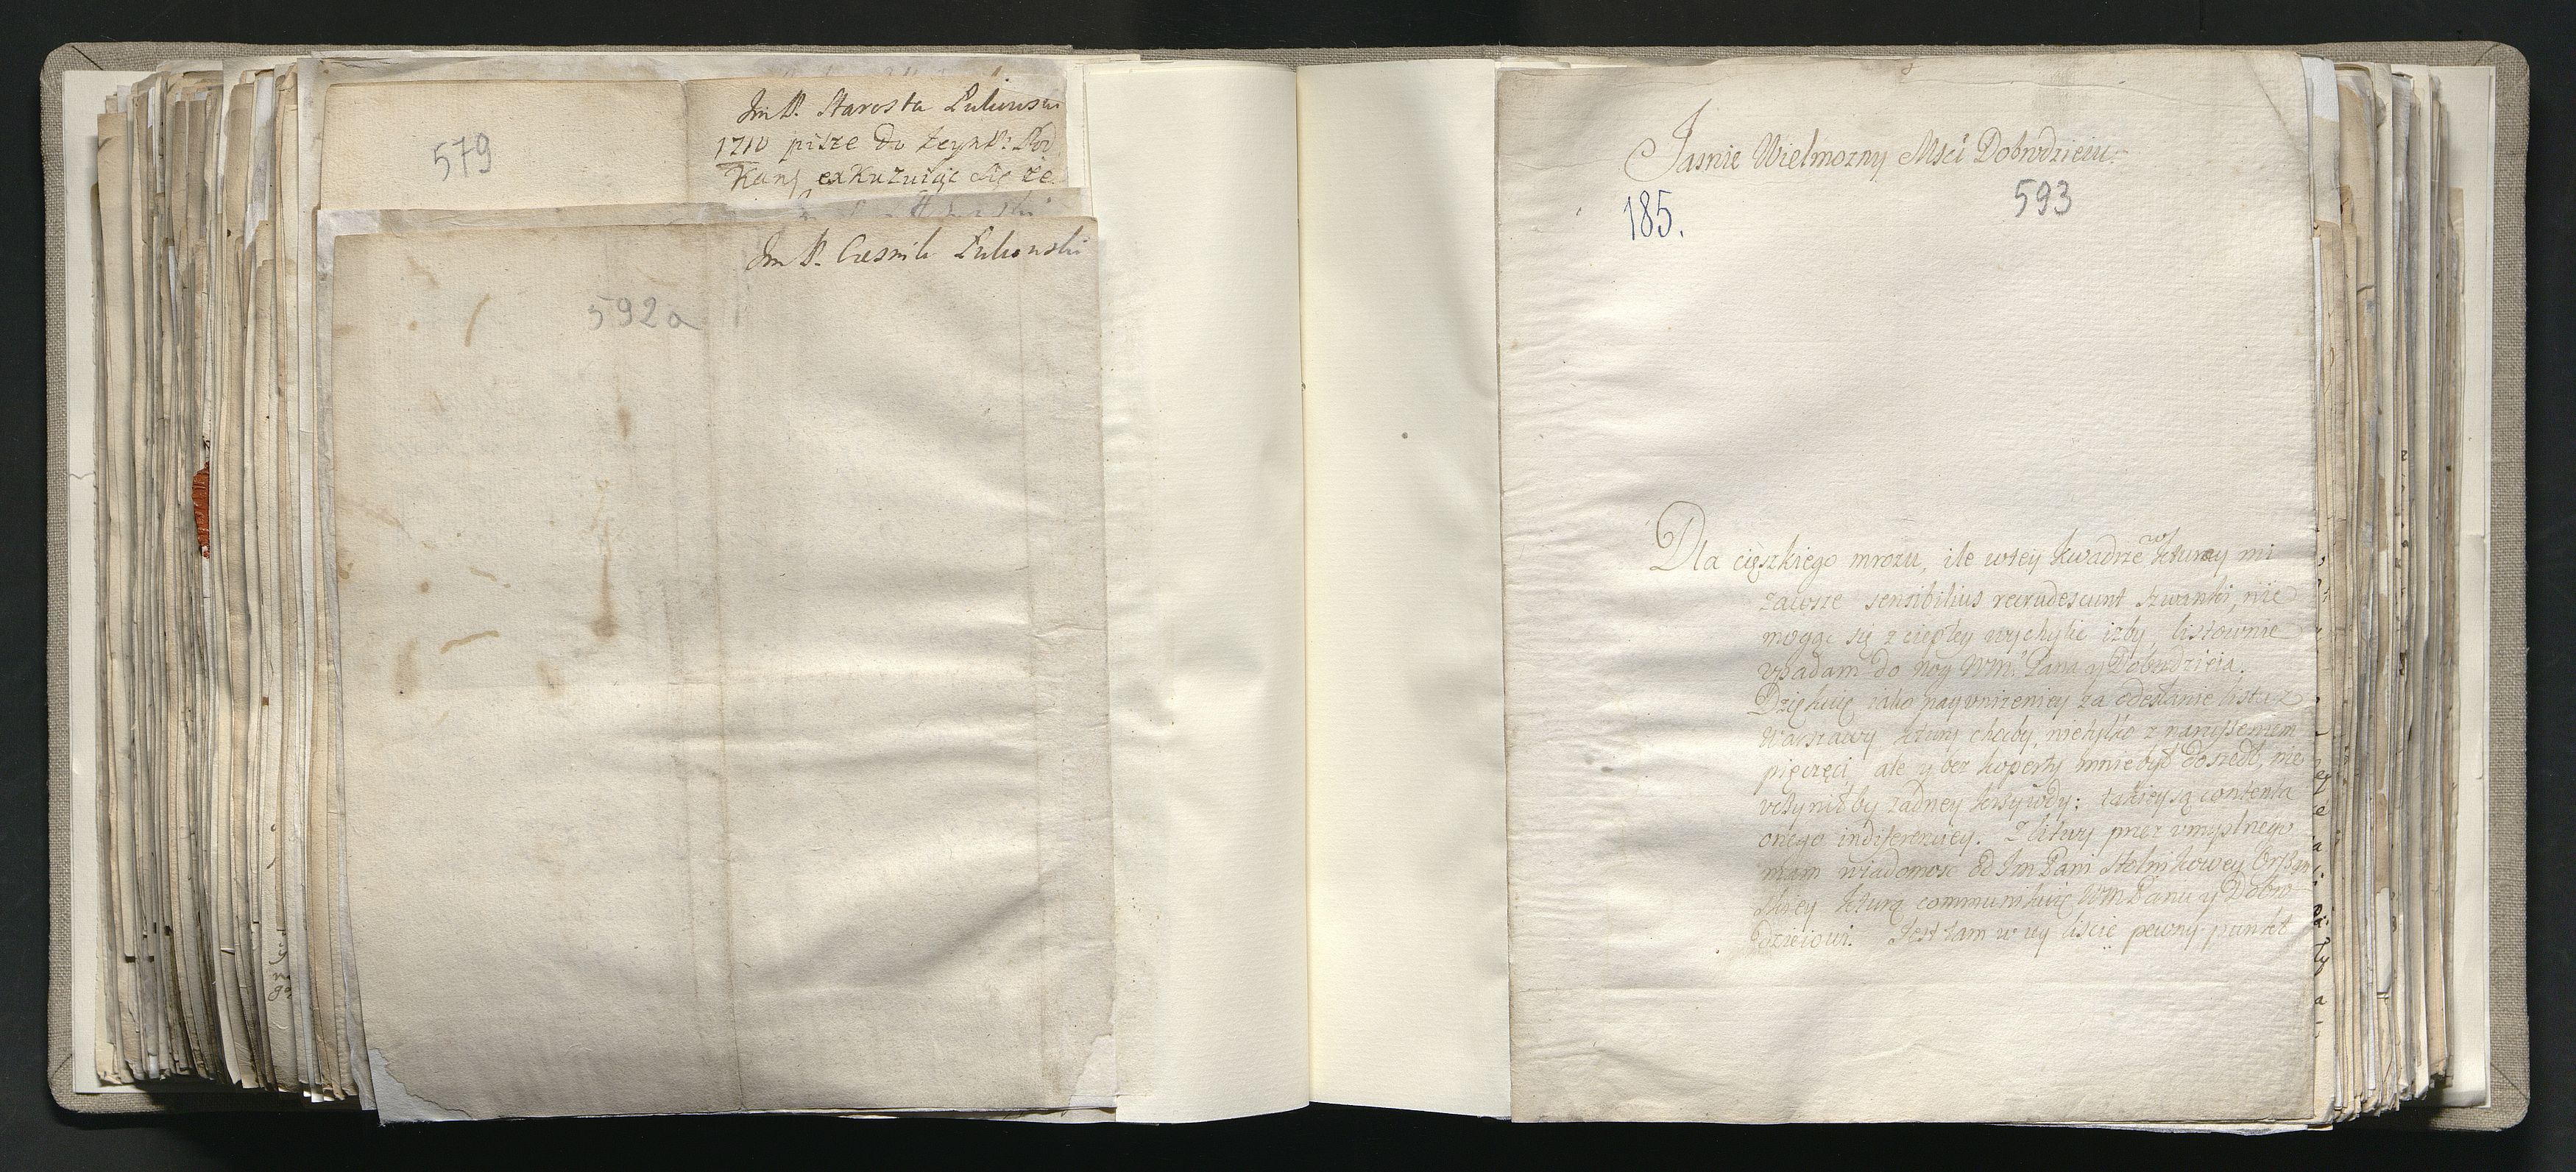 579
Im P. Starosta Lukowski
1710 pisze do Zeyn P: Pod
Kanc exkuzuiąc się że
Im P. Czesnik Lukowski
592a
Jasnie Wielmozny Msci Dobrodzieiu.
593
185.
Dla cięszkiego mrozu, ile wtey kwadrze w kturey mi
zawsze sensibilius recrudescunt szwanki, nie
mogąc się z ciepłey wychylic izby, listownie
vpadam do nog WM. Pana y Dobrodzieia.
Dziękuię iako nayvnizeniey za odesłanie listu z
Warszawy, ktury choćby nietylko z naruszeniem
pięczęci, ale y bez koperty mnie był doszedł, nie
vczyniłby zadney krzywdy: takiey są contenta
onego indiferencyey. Z Litwy przez vmyslnego
mam wiadomosc od Im Pani Stolnikowey Orszan
skiey kturą communikuię WM Panu y Dobro
dzieiowi. Jest tam w iey liscie pewny punkt